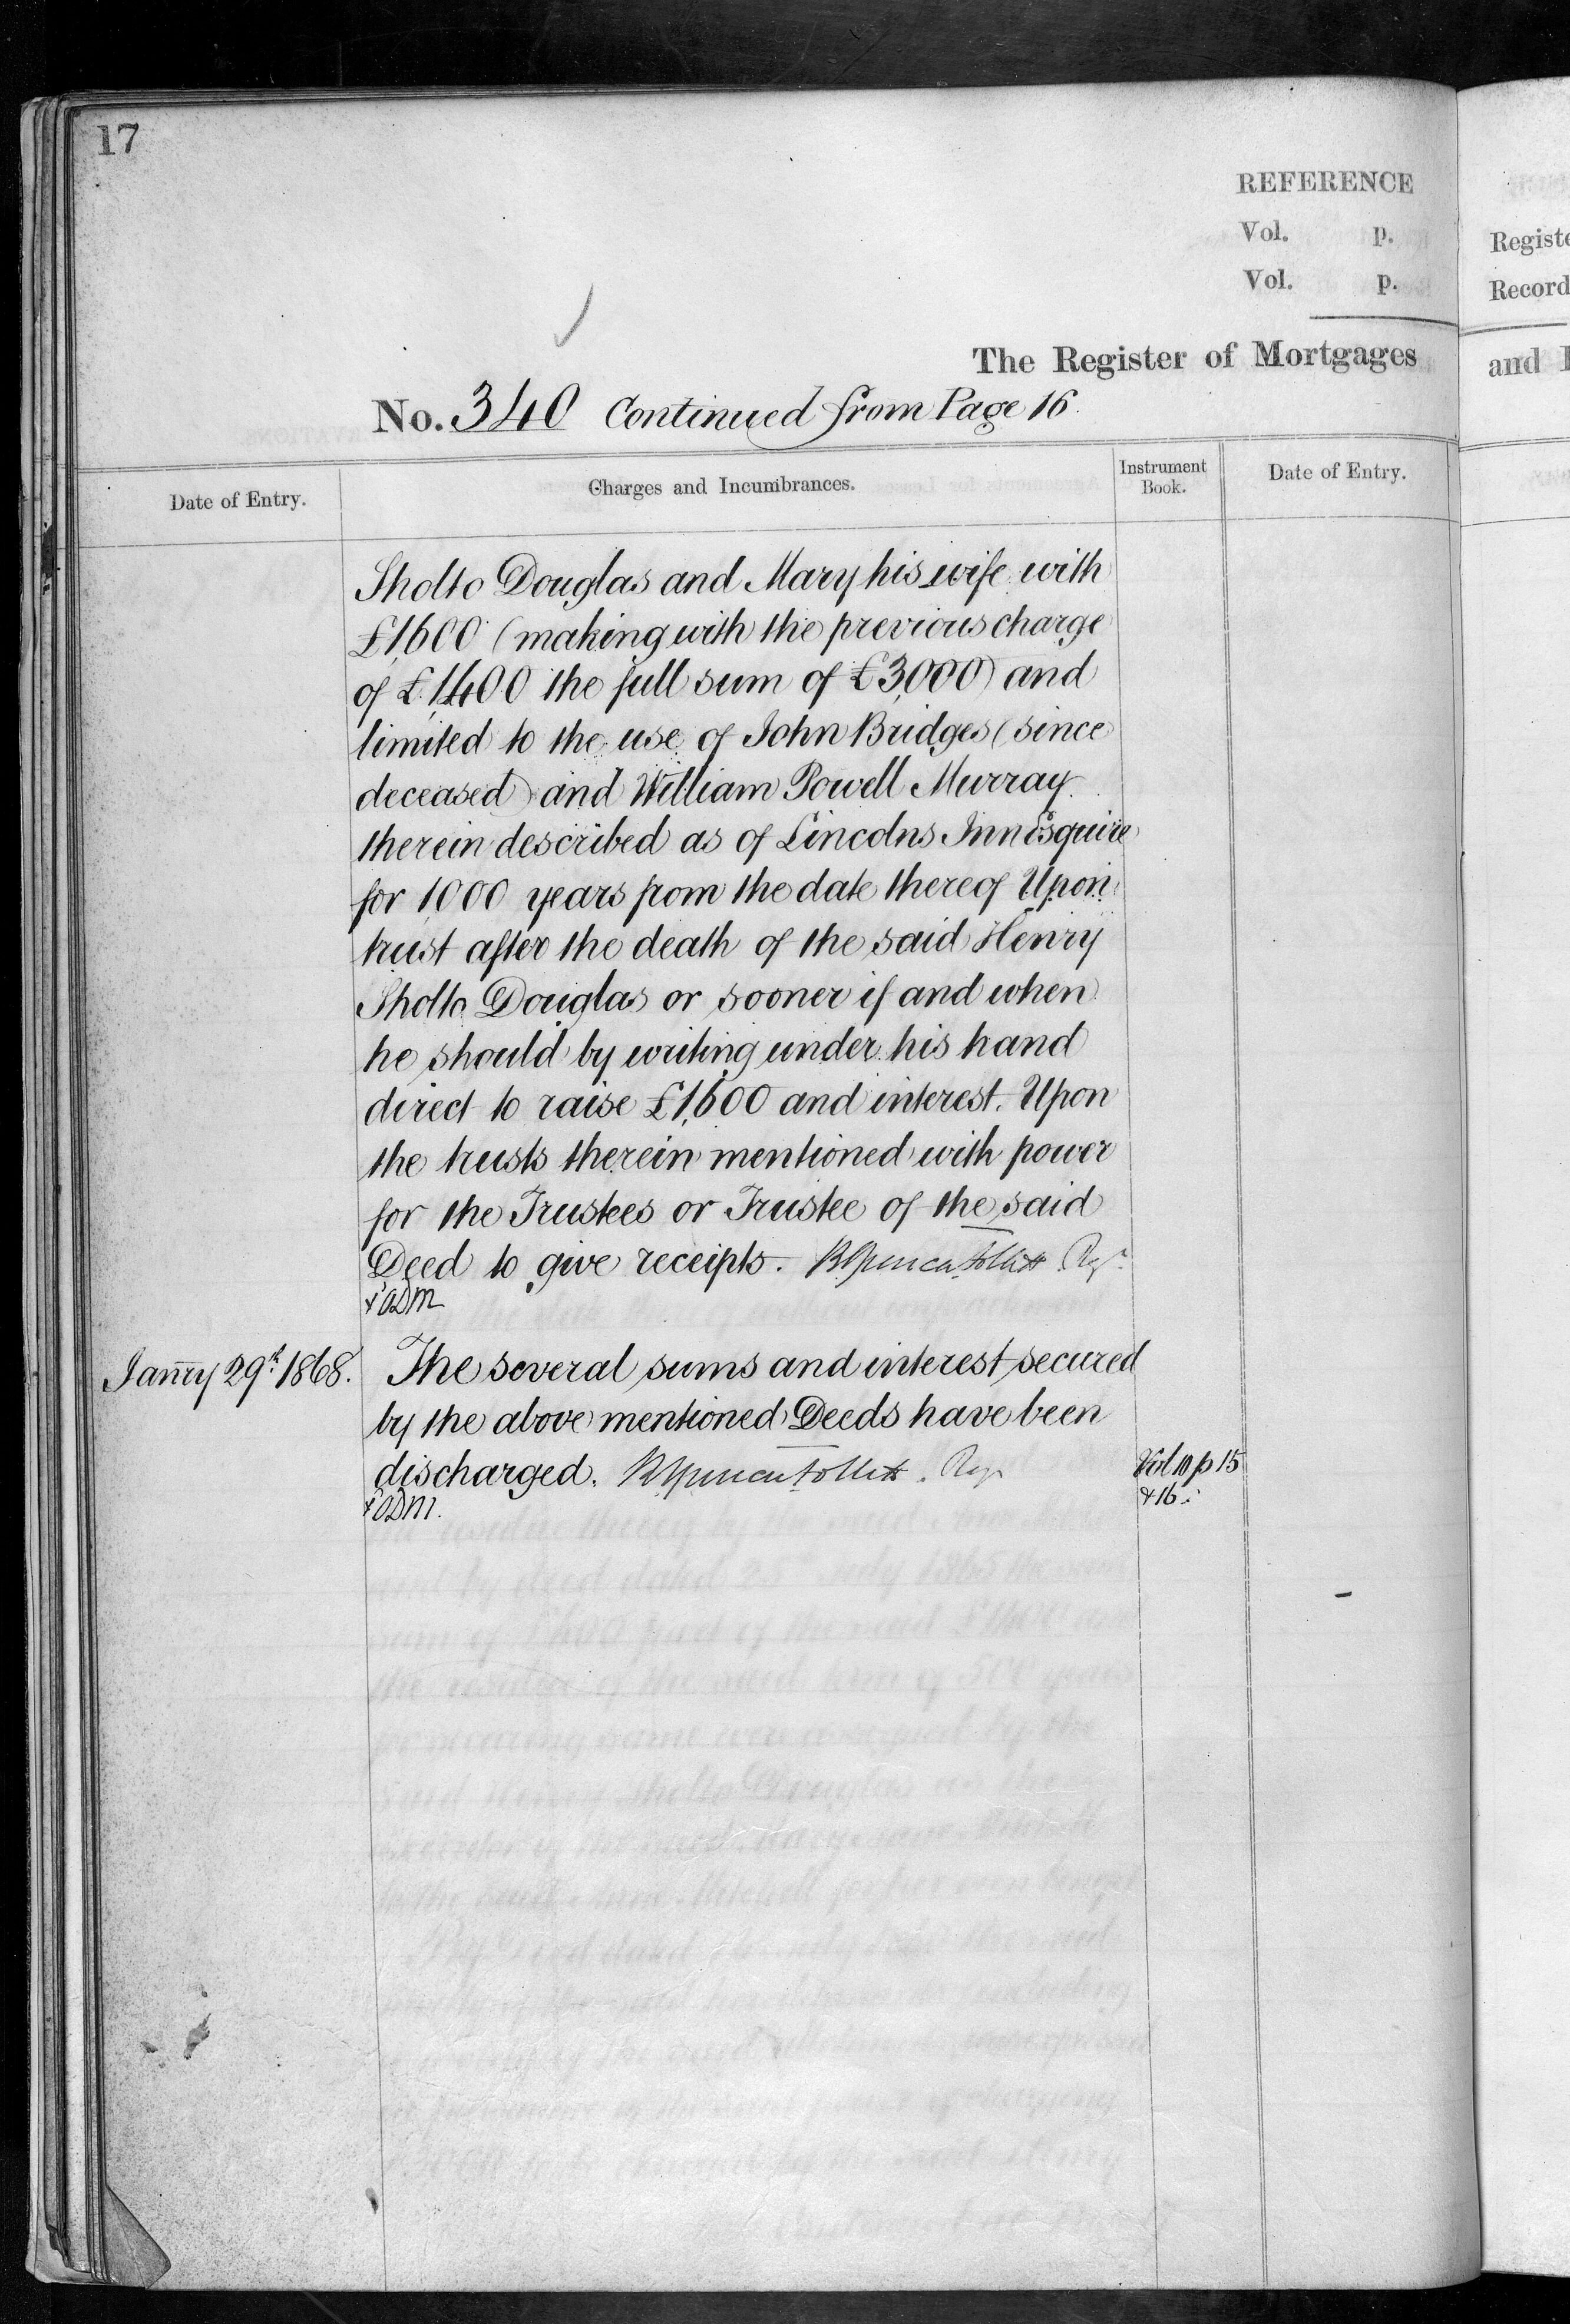 17
REFERENCE
Vol. p.
Vol. p.
The Register of Mortgages
No. 340 Continued from Page 16.
Date of Entry. Charges and Incumbrances. Instrument Book. Date of Entry.
Sholto Douglas and Mary his wife with
£1,600 (making with the previous charge
of £1,400 the full sum of £3,000) and
limited to the use of John Bridges (since
deceased) and William Powell Murray
therein described as of Lincolns Inn Esquire
for 1000 years from the date thereof Upon
trust after the death of the said Henry
Sholto Douglas or sooner if and when
he should by writing under his hand
direct to raise £1,600 and interest. Upon
the trusts therein mentioned with power
for the Trustees or Trustee of the said
Deed to give receipts. Regr
Janry 29th 1868. The several sums and interest secured
by the above mentioned Deeds have been
discharged. Regr Vol 10 p 15
& 16.
Registe
Record
and